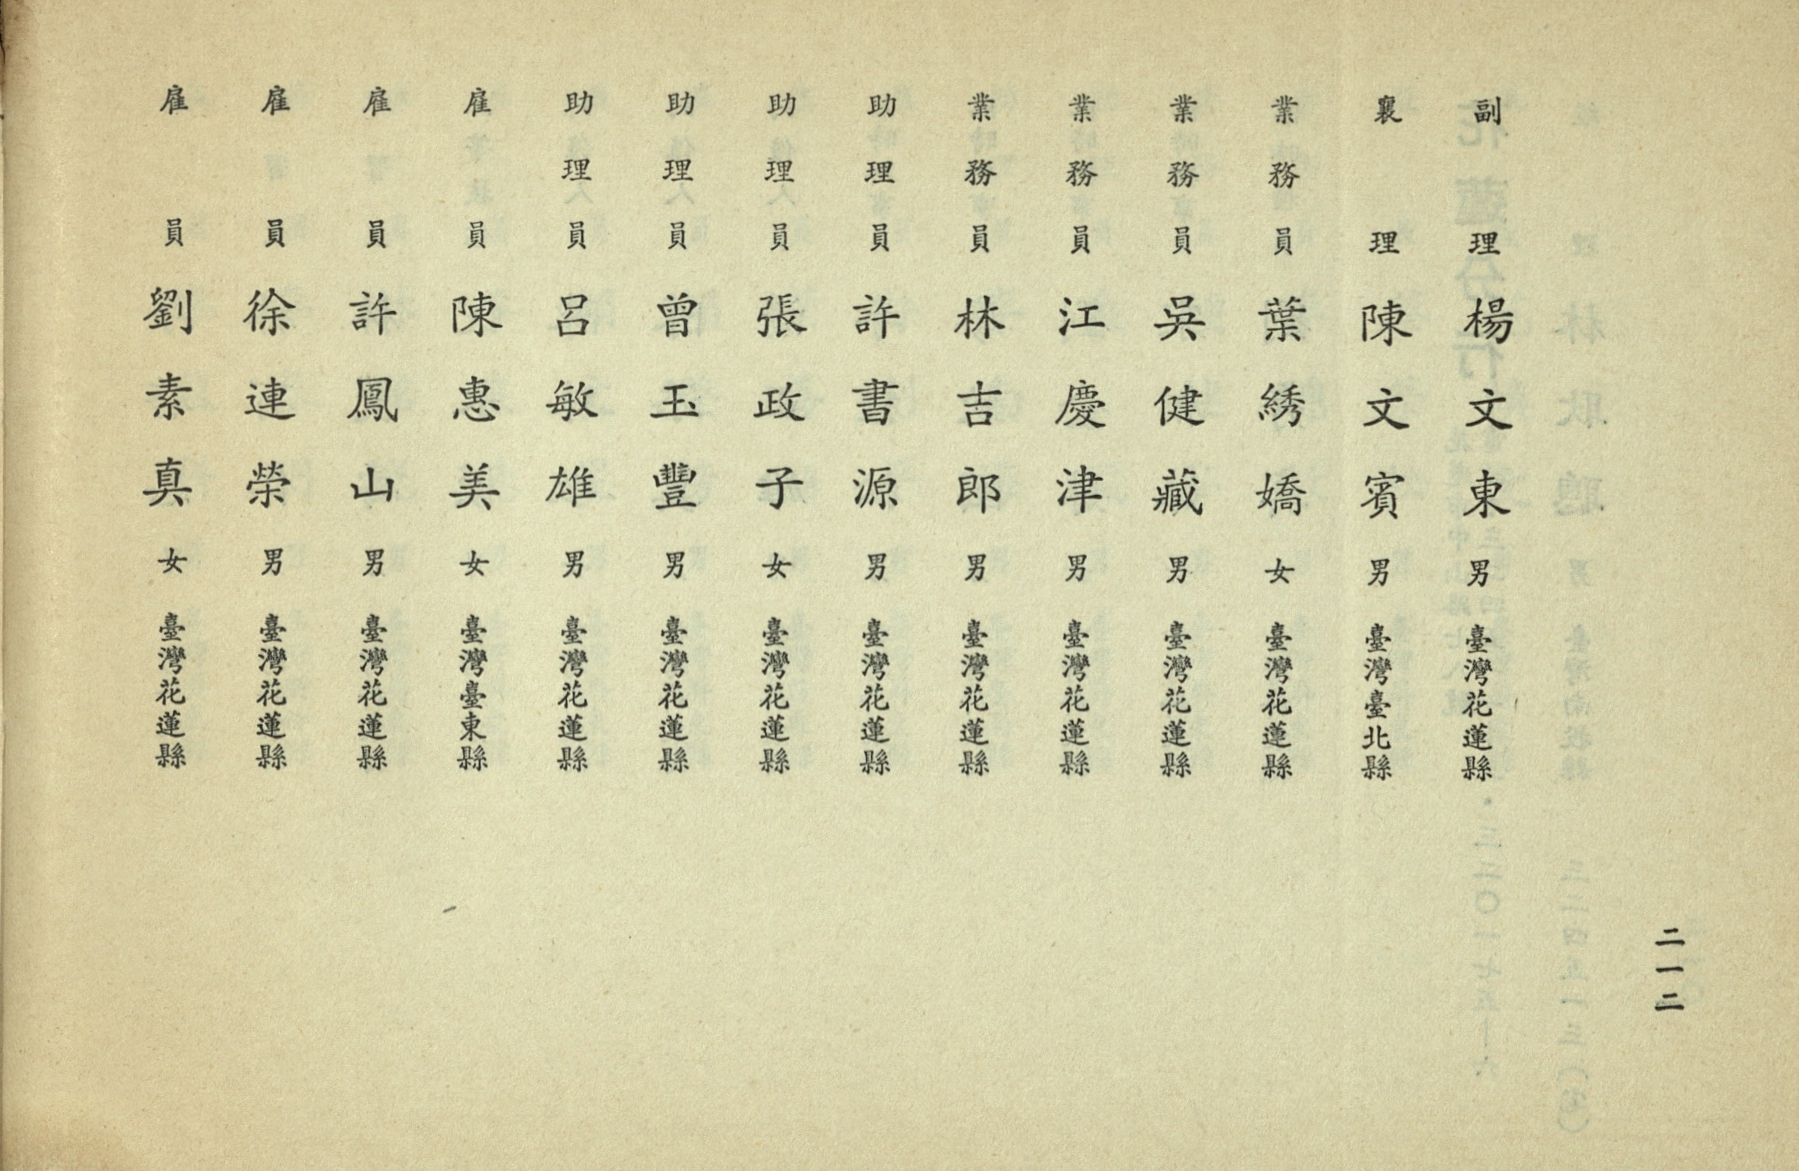 副理楊文東男臺灣花蓮縣
襄理陳文賓男臺灣臺北縣
業務員葉綉嬌女臺灣花蓮縣
業務員吳健藏男臺灣花蓮縣
業務員江慶津男臺灣花蓮縣
業務員林吉郎男臺灣花蓮縣
助理員許書源男臺灣花蓮縣
助理員張政子女臺灣花蓮縣
助理員曾玉豐男臺灣花蓮縣
助理員呂敏雄男臺灣花蓮縣
雇員陳惠美女臺灣臺東縣
雇員許鳳山男臺灣花蓮縣
雇員徐連榮男臺灣花蓮縣
雇員劉素真女臺灣花蓮縣
二一二